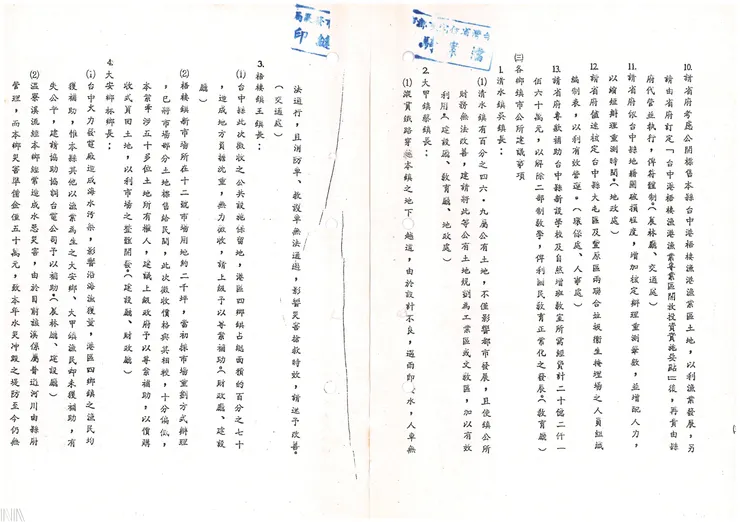 10.請省府考慮公開標售本縣台中港梧棲漁港漁業區土地，以利漁業發展，另
請由省府訂定「台中港梧棲漁港漁業專業區開放投資實施要點」後，再責由縣
府代管並執行，俾符體制。（農林廳、交通處）
11.請省府依台中縣地籍圖破損程度，增加核定辦理重測筆數，並增配人力，
以縮短辦理重測時間。（地政處）
12.請省府儘速核定台中縣大屯區及豐原區兩聯合垃圾衛生掩埋場之人員組織
編制表，以利有效營運。（環保處、人事處）
13.請省府專款補助台中縣新設學校及自然增班教室所需經費計二十億二仟一
佰六十萬元，以解除二部制教學，俾利國民教育正常化之發展。（教育廳）
㈢各鄉鎮市公所建議事項
1.清水鎮吳鎮長：
⑴清水鎮有百分之四六．九屬公有土地，不僅影響都市發展，且使鎮公所
財務無法改善，建請將此等公有土地規劃為工業區或文教區，加以有效
利用。（建設廳、教育廳、地政處）
2.大甲鎮蔡鎮長：
⑴縱貫鐵路穿越本鎮之地下道，由於設計不良，遇雨即水，人車無
法通行，且消防車、救護車無法通過，影響災害搶救時效，請逕予改善。
（交通處）
3.梧棲鎮王鎮長：
⑴台中縣此次徵收之公共設施保留地，港區四鄉鎮占總面積的百分之七十
，造成地方負擔沈重，無力徵收，請上級予以專案補助。（財政廳、建設
廳）
⑵梧棲鎮新市場所在十二號市場用地約二千坪，當初採市場重劃方式辦理
，已將市場部分土地標售給民間，此次徵收價格與其相較，十分偏低，
本案牽涉五十多位土地所有權人，建議上級政府予以專案補助，以價購
收式買回土地，以利市場之整體開發。（建設廳、財政廳）
4.大安鄉林鄉長：
⑴台中火力發電廠造成海水污染，影響沿海漁獲量，港區四鄉鎮之漁民均
獲補助，惟本縣其他以漁業為生之大安鄉、大甲鎮漁民卻未獲補助，有
失公平，建請協助協調台電公司予以補助。（農林廳、建設廳）
⑵溫寮溪流經本鄉經常造成水患災害，由於目前該溪係屬普通河川由縣府
管理，而本鄉災害準備金僅五十萬元，致本年水災沖毀之堤防至今仍無